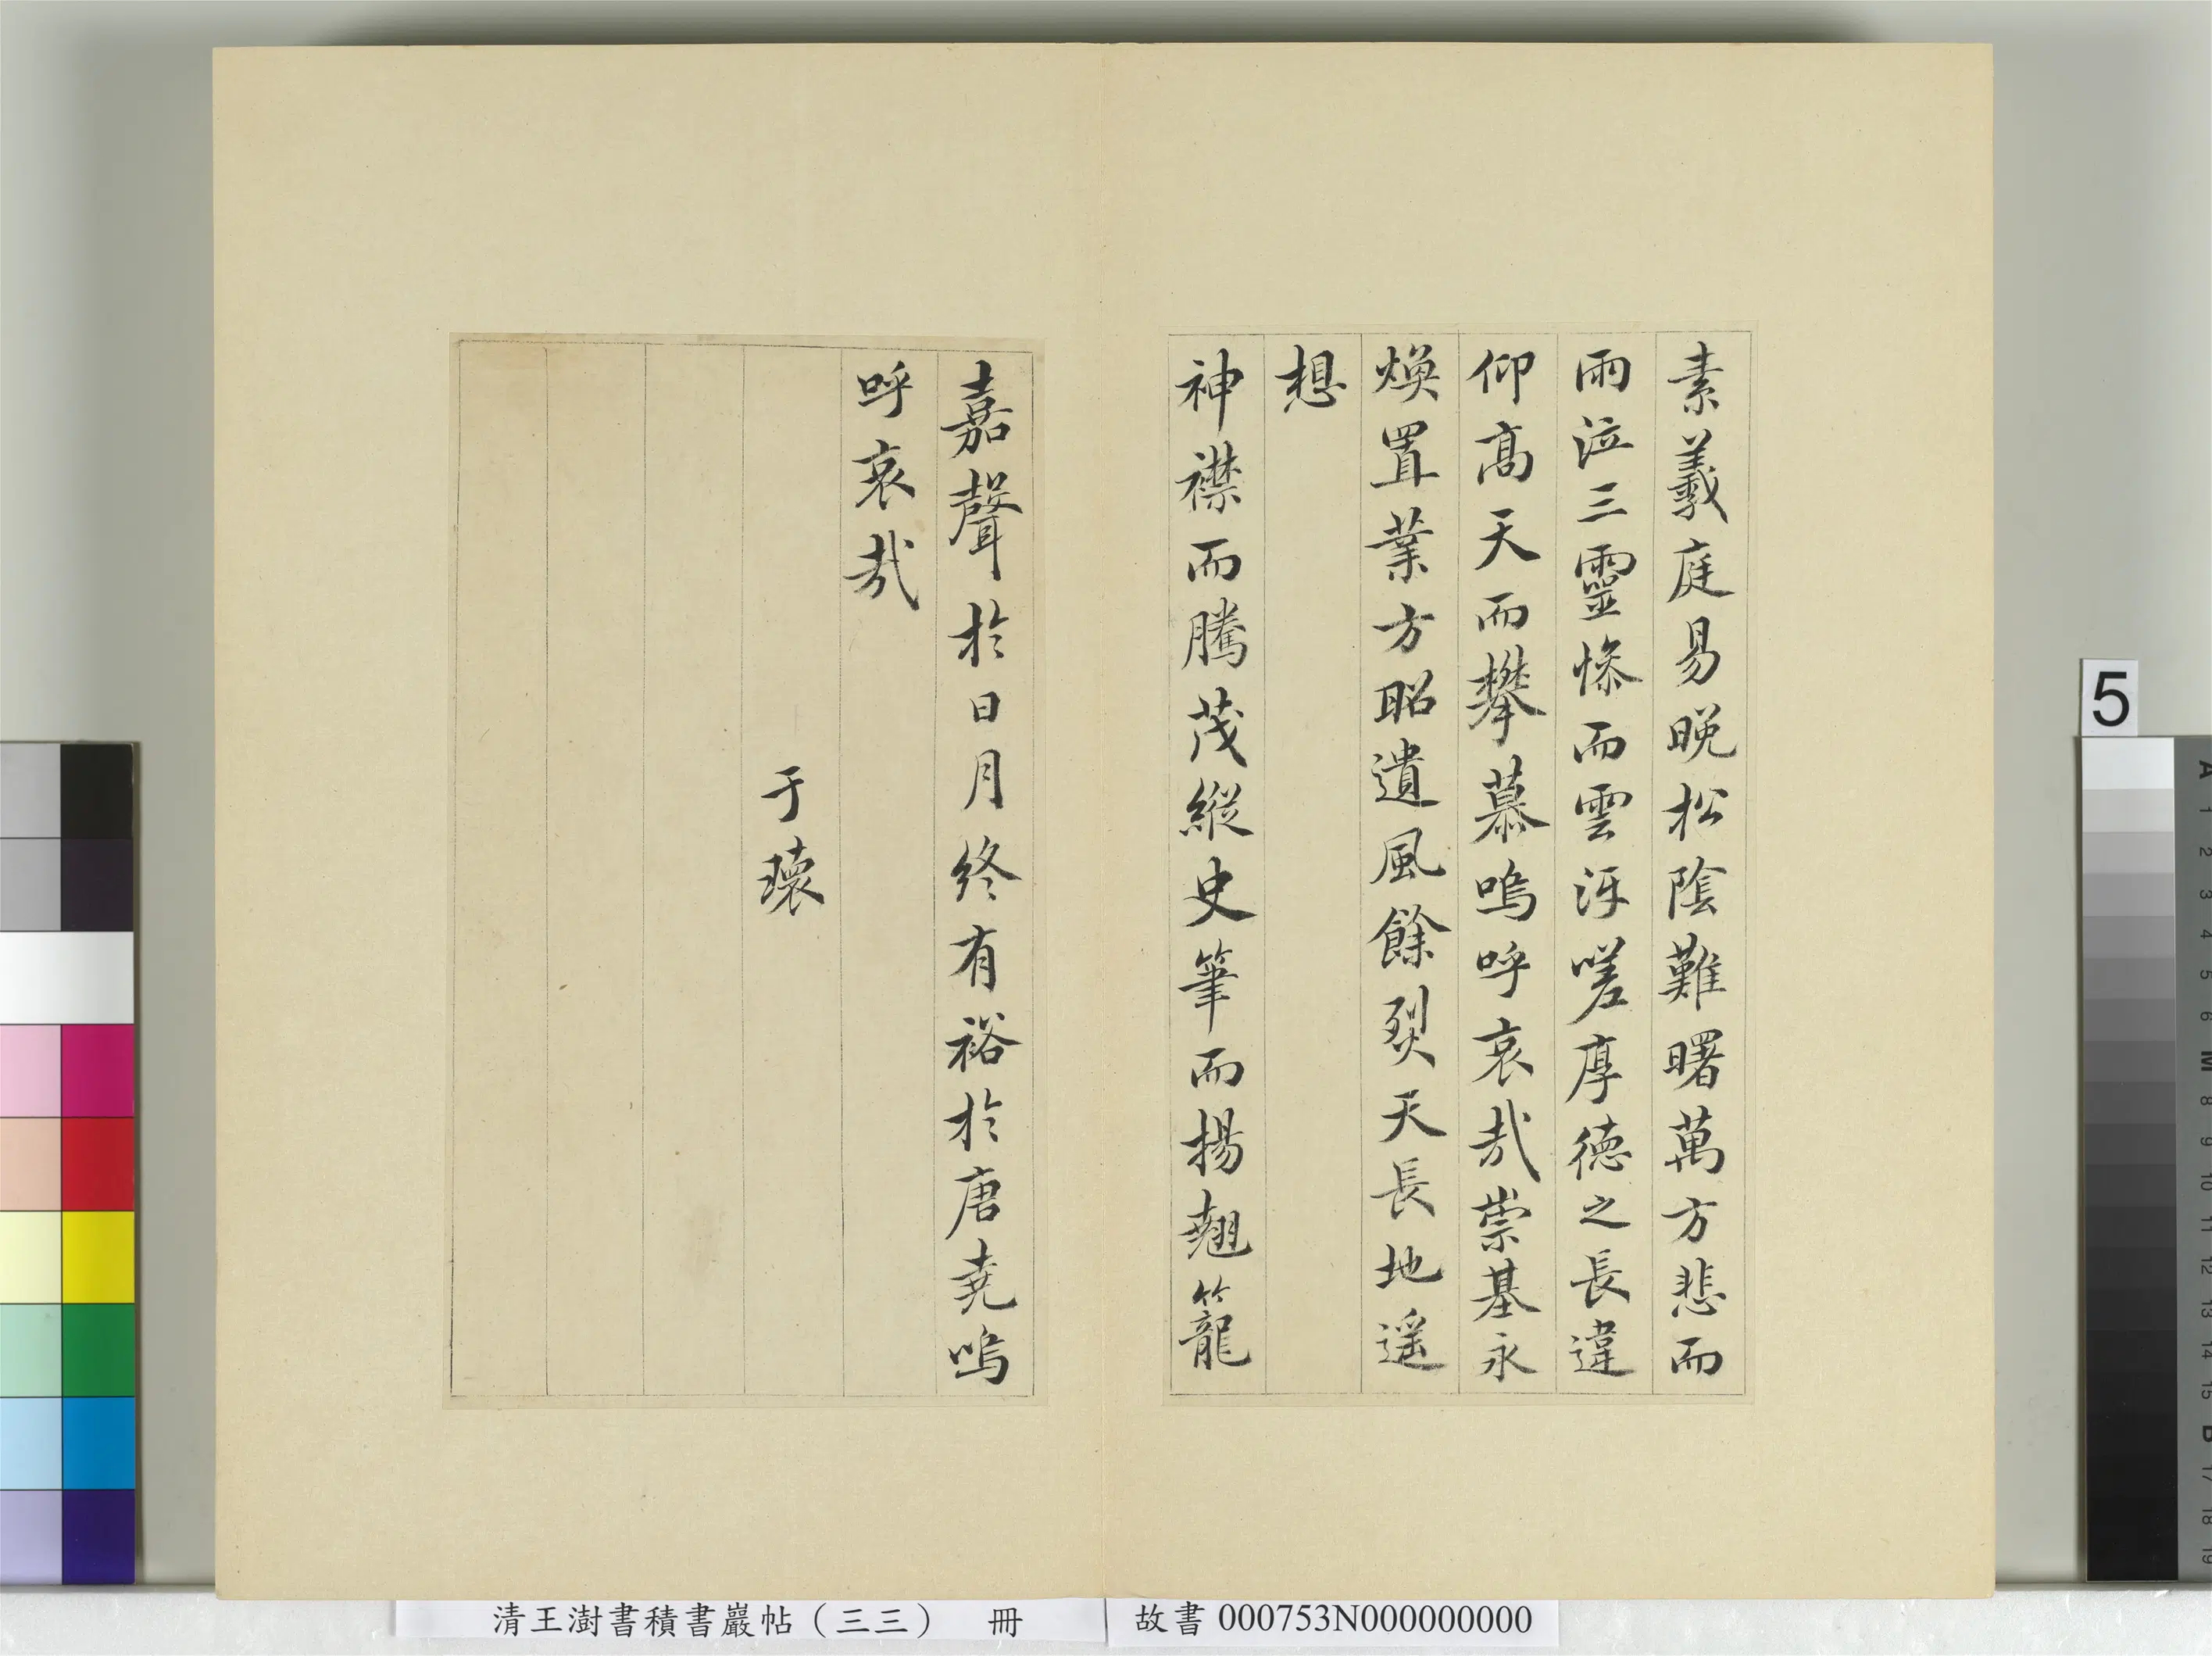 素羲庭易晚松陰難曙萬方悲而
雨泣三靈慘而雲冱嗟厚德之長違
仰高天而攀慕嗚呼哀哉崇基永
煥置業方昭遺風餘烈天長地遥
想
神襟而騰茂縱史筆而揚翹籠
嘉聲於日月終有裕於唐堯嗚
呼哀哉
于瓌
5
A 1 2 3 4 5 6 M 8 9 10 11 12 13 14 15 B 17 18 19
清王澍書積書巖帖（三三） 冊
故書 000753N000000000